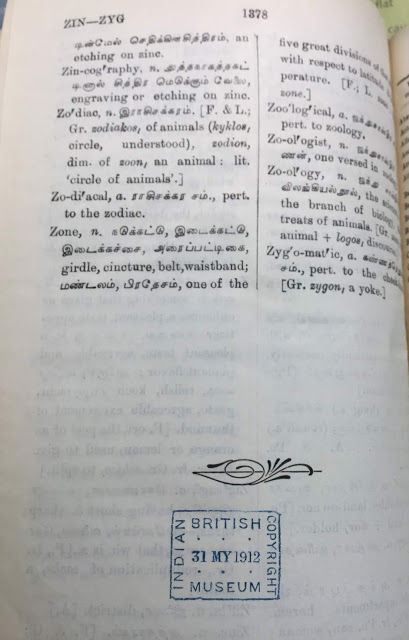 ZIN—ZYG
1378
டின்மேல் செதுக்கினசித்திரம், an
etching on zinc.
Zin-cog'raphy, n. அத்தகாகத்தகட்
டினால் சித்திர மெடுக்கும் வேலை,
engraving or etching on zinc.
Zo'diac, n. இராசிசக்கரம். [F. & L.;
Gr. zodiakos, of animals (kyklos,
circle, understood), zodion,
dim. of zoon, an animal: lit.
'circle of animals'.]
Zo-di'acal, a. ராசிசக்கர சம்., pert.
to the zodiac.
Zone, n. நடுக்கட்டு, இடைக்கட்டு,
இடைக்கச்சை, அரைப்பட்டிகை,
girdle, cincture, belt, waistband;
மண்டலம், பிரதேசம், one of the
five great divisions of the
with respect to latitude
perature. [F.; L.
zone.]
Zoo'log'ical, a.
pert. to zoology.
Zo-ol'ogist, n.
ணன், one versed in
Zo-ol'ogy, n.
விலங்கியல்நூல், the
the branch of
treats of animals. [Gr.
animal + logos,
Zyg'o-mat'ic, a.
சம்., pert. to the
[Gr. zygon, a yoke.]
INDIAN
BRITISH
31 MY 1912
MUSEUM
COPYRIGHT